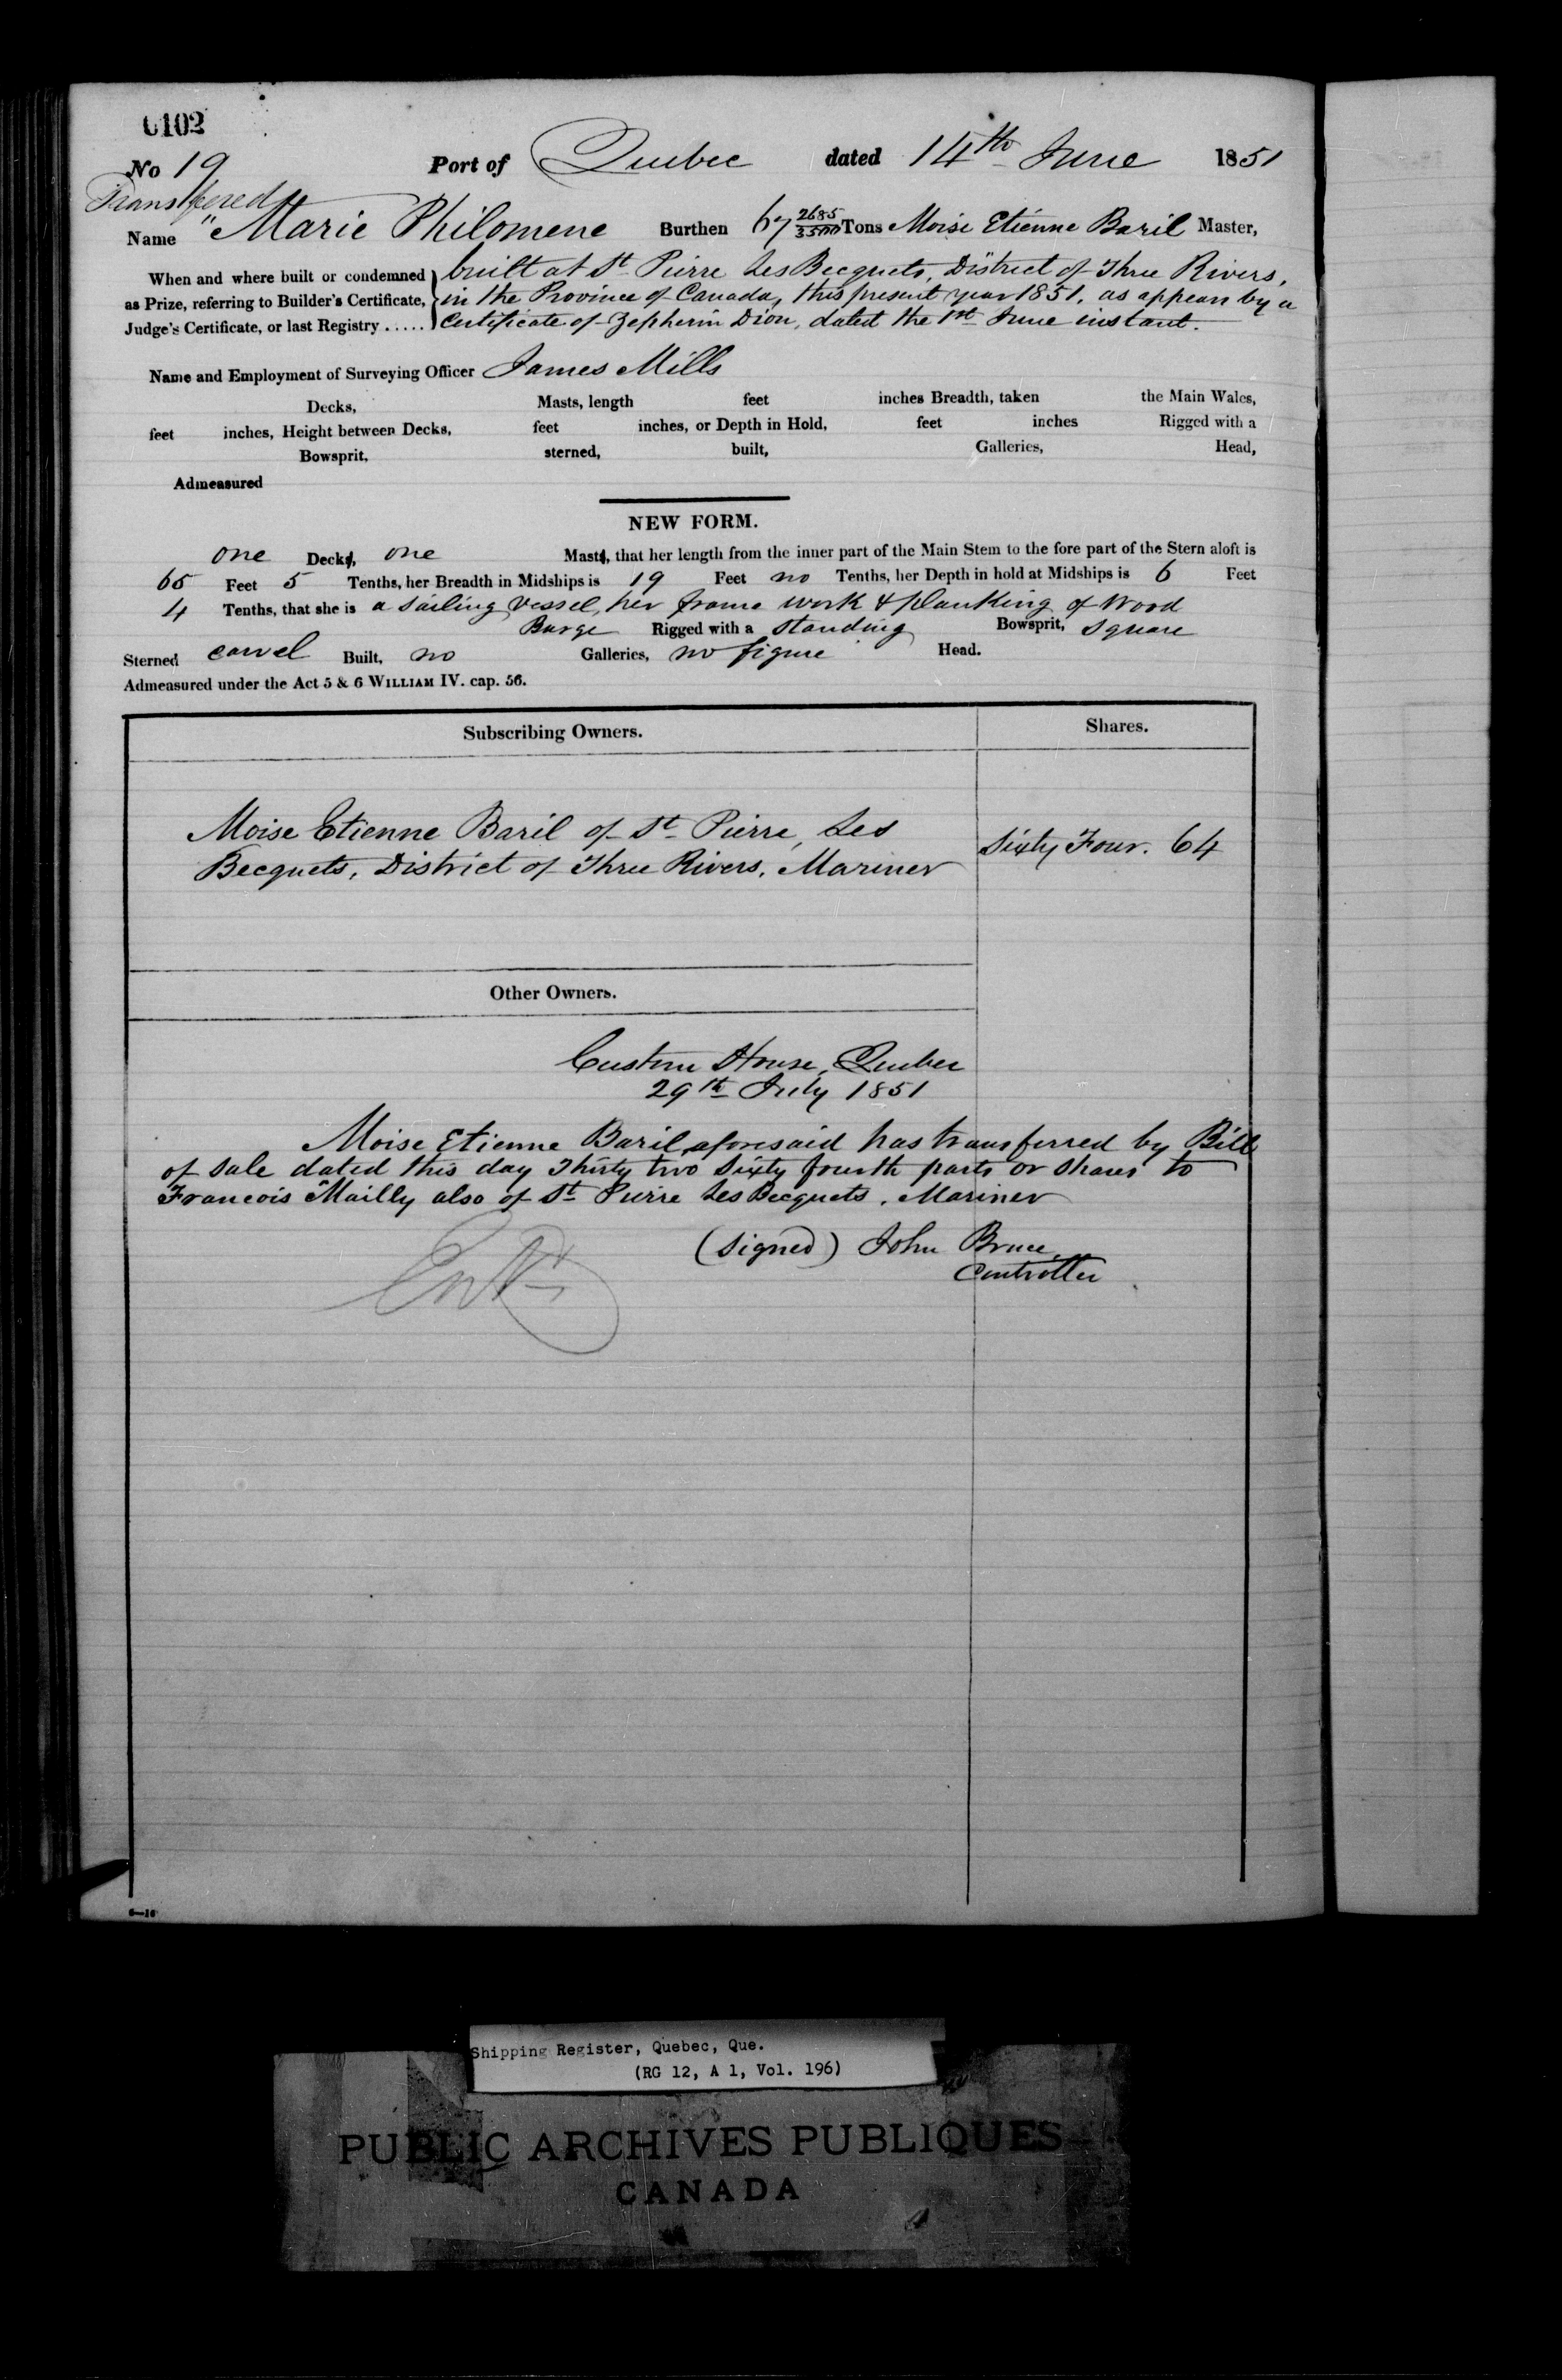 0102
No 19 Port of Quebec dated 14th June 1851
Transfered
Name "Marie Philomene Burthen 67 2685/3500 Tons Moise Etienne Baril Master,
When and where built or condemned built at St Pierre Les Becquets, District of Three Rivers,
as Prize, referring to Builder's Certificate, in the Province of Canada, this present year 1851. as appears by a
Judge's Certificate, or last Registry ..... Certificate of Zepherin Dion, dated the 1st June instant.
Name and Employment of Surveying Officer James Mills
Decks, Masts, length feet inches Breadth, taken the Main Wales,
feet inches, Height between Decks, feet inches, or Depth in Hold, feet inches Rigged with a
Bowsprit, sterned, built, Galleries, Head,
Admeasured
NEW FORM.
one Decks, one Masts, that her length from the inner part of the Main Stem to the fore part of the Stern aloft is
65 Feet 5 Tenths, her Breadth in Midships is 19 Feet no Tenths, her Depth in hold at Midships is 6 Feet
4 Tenths, that she is a sailing vessel, her frame work & planking of wood
Barge Rigged with a standing Bowsprit, square
Sterned carvel Built, no Galleries, no figure Head.
Admeasured under the Act 5 & 6 WILLIAM IV. cap. 56.
Subscribing Owners. Shares.
Moise Etienne Baril of St Pierre, Les
Becquets, District of Three Rivers, Mariner Sixty Four. 64
Other Owners.
Custom House, Quebec
29th July 1851
Moise Etienne Baril aforesaid has transferred by Bill
of sale dated this day Thirty two Sixty fourth parts or shares to
Francois Mailly also of St Pierre Les Becquets, Mariner
(Signed) John Bruce
Controller
6—16
Shipping Register, Quebec, Que.
(RG 12, A 1, Vol. 196)
PUBLIC ARCHIVES PUBLIQUES
CANADA